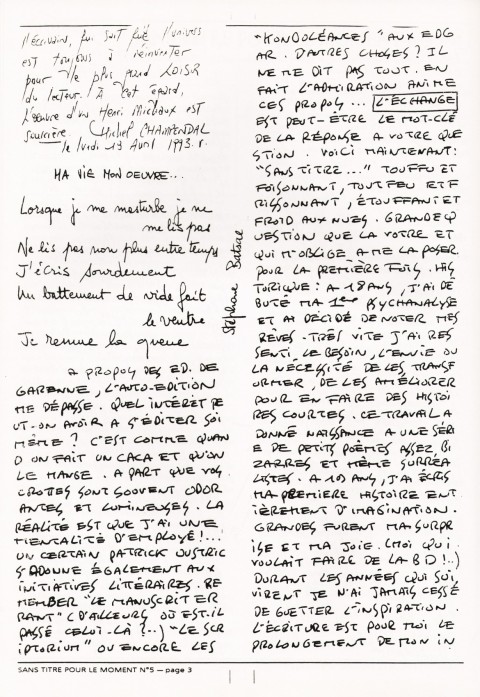 l'écrivain, qui sait que l'univers
est toujours à réinventer
pour le plus grand LOISIR
du lecteur. À cet égard,
l'œuvre d'un Henri Michaux est
sourcière. Michel CHAMPENDAL
le lundi 19 Avril 1993.
MA VIE MON OEUVRE...
Lorsque je me masturbe je ne
me lis pas
Ne lis pas non plus entre temps
J'écris sourdement
Un battement de vide fait
le ventre
Je remue la queue
Stéphane Bataise
A PROPOS DES ED. DE
GARENNE, L'AUTO-EDITION
ME DÉPASSE. QUEL INTÉRÊT PE
UT-ON AVOIR A S'ÉDITER SOI
MÊME ? C'EST COMME QUAN
D ON FAIT UN CACA ET QU'ON
LE MANGE. A PART QUE VOS
CROTTES SONT SOUVENT ODOR
ANTES ET LUMINEUSES. LA
RÉALITÉ EST QUE J'AI UNE
MENTALITÉ D'EMPLOYÉ !...
UN CERTAIN PATRICK OUSTRIC
S'ADONNE ÉGALEMENT AUX
INITIATIVES LITTÉRAIRES. RE
MEMBER "LE MANUSCRIT ER
RANT" (D'AILLEURS OÙ EST-IL
PASSÉ CELUI-LÀ ?..) "LE SCR
IPTORIUM" OU ENCORE LES
"KONDOLÉANCES" AUX EDG
AR. D'AUTRES CHOSES ? IL
NE ME DIT PAS TOUT. EN
FAIT L'ADMIRATION ANIME
CES PROPOS... L'ÉCHANGE
EST PEUT-ÊTRE LE MOT-CLÉ
DE LA RÉPONSE A VOTRE QUE
STION. VOICI MAINTENANT:
"SANS TITRE..." TOUFFU ET
FOISONNANT, TOUT FEU ET F
RISSONNANT, ÉTOUFFANT ET
FROID AUX NUES. GRANDE Q
UESTION QUE LA VOTRE ET
QUI M'OBLIGE A ME LA POSER.
POUR LA PREMIÈRE FOIS. HIS
TORIQUE : A 18 ANS, J'AI DÉ
BUTÉ MA 1ère PSYCHANALYSE
ET AI DÉCIDÉ DE NOTER MES
RÊVES. TRÈS VITE J'AI RES
SENTI LE BESOIN, L'ENVIE OU
LA NÉCESSITÉ DE LES TRANSF
ORMER, DE LES AMÉLIORER
POUR EN FAIRE DES HISTOI
RES COURTES. CE TRAVAIL A
DONNÉ NAISSANCE A UNE SÉRI
E DE PETITS POÈMES ASSEZ BI
ZARRES ET MÊME SURRÉA
LISTES. A ANS, J'AI ÉCRIS
MA PREMIERE HISTOIRE ENT
IÈREMENT D'IMAGINATION.
GRANDES FURENT MA SURPR
ISE ET MA JOIE. (MOI QUI
VOULAIT FAIRE DE LA BD !..)
DURANT LES ANNÉES QUI SUI,
VIRENT JE N'AI JAMAIS CESSÉ
DE GUETTER L'INSPIRATION.
L'ÉCRITURE EST POUR MOI LE
PROLONGEMENT DE MON IN
SANS TITRE POUR LE MOMENT N°5 — page 3